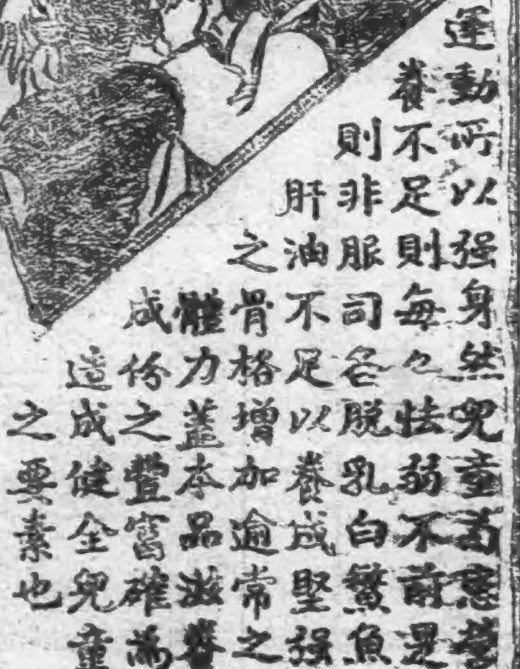 運動所以强身然兒童苟患營
養不足則每々怯弱不前是
則非服司各脱乳白鰵魚
肝油不足以養成堅强
之骨格增加逾常之
體力蓋本品滋養
成份之豐富確為
造成健全兒童
之要素也